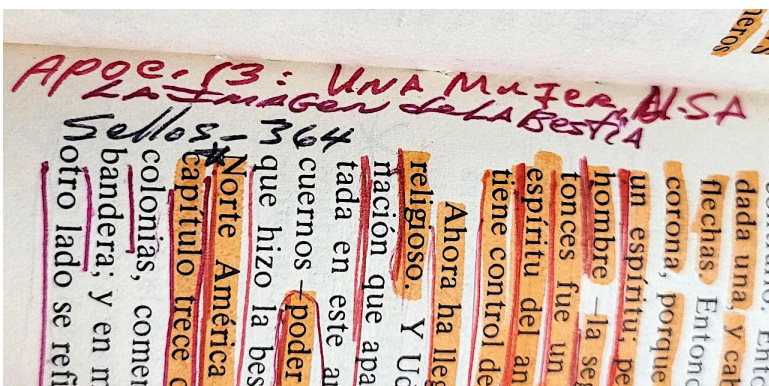 Apoc. 13: UNA MuJER, U.SA
LA ImAGen de LA BestiA
Sellos - 364
dada una y ca
flechas. Enton
corona, porque
un espíritu; pe
hombre —la seg
tonces fue un
espíritu del an
tiene control de
Ahora ha lleg
religioso. Y Ud
nación que apa
tada en este
cuernos —poder
que hizo la bes
Norte América
capítulo trece
colonias, comen
bandera; y en
otro lado se refi